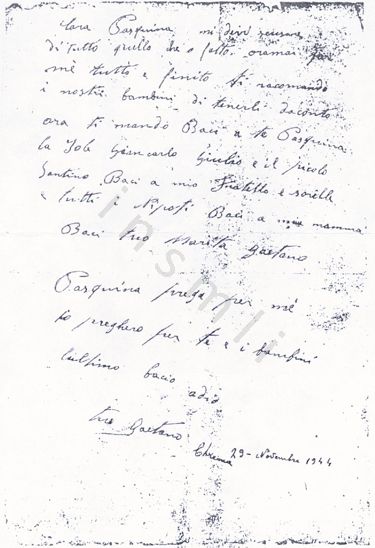 Cara Pasquina mi devi scusare
di tutto quello che o fatto. oramai per
mè tutto e finito ti racomando
i nostri bambini di tenerli daconto
ora ti mando Baci a te Pasquina
la Iole Giancarlo Giulio e il picolo
Santino Baci a mio Fratello e sorelle
e tutti i Nipoti Baci a mia mamma
Baci tuo Marito Gaetano
Pasquina prega per mè
io pregherò per te e i bambini
lultimo bacio adio
tuo Gaetano
29 - Novembre 1944
insmli